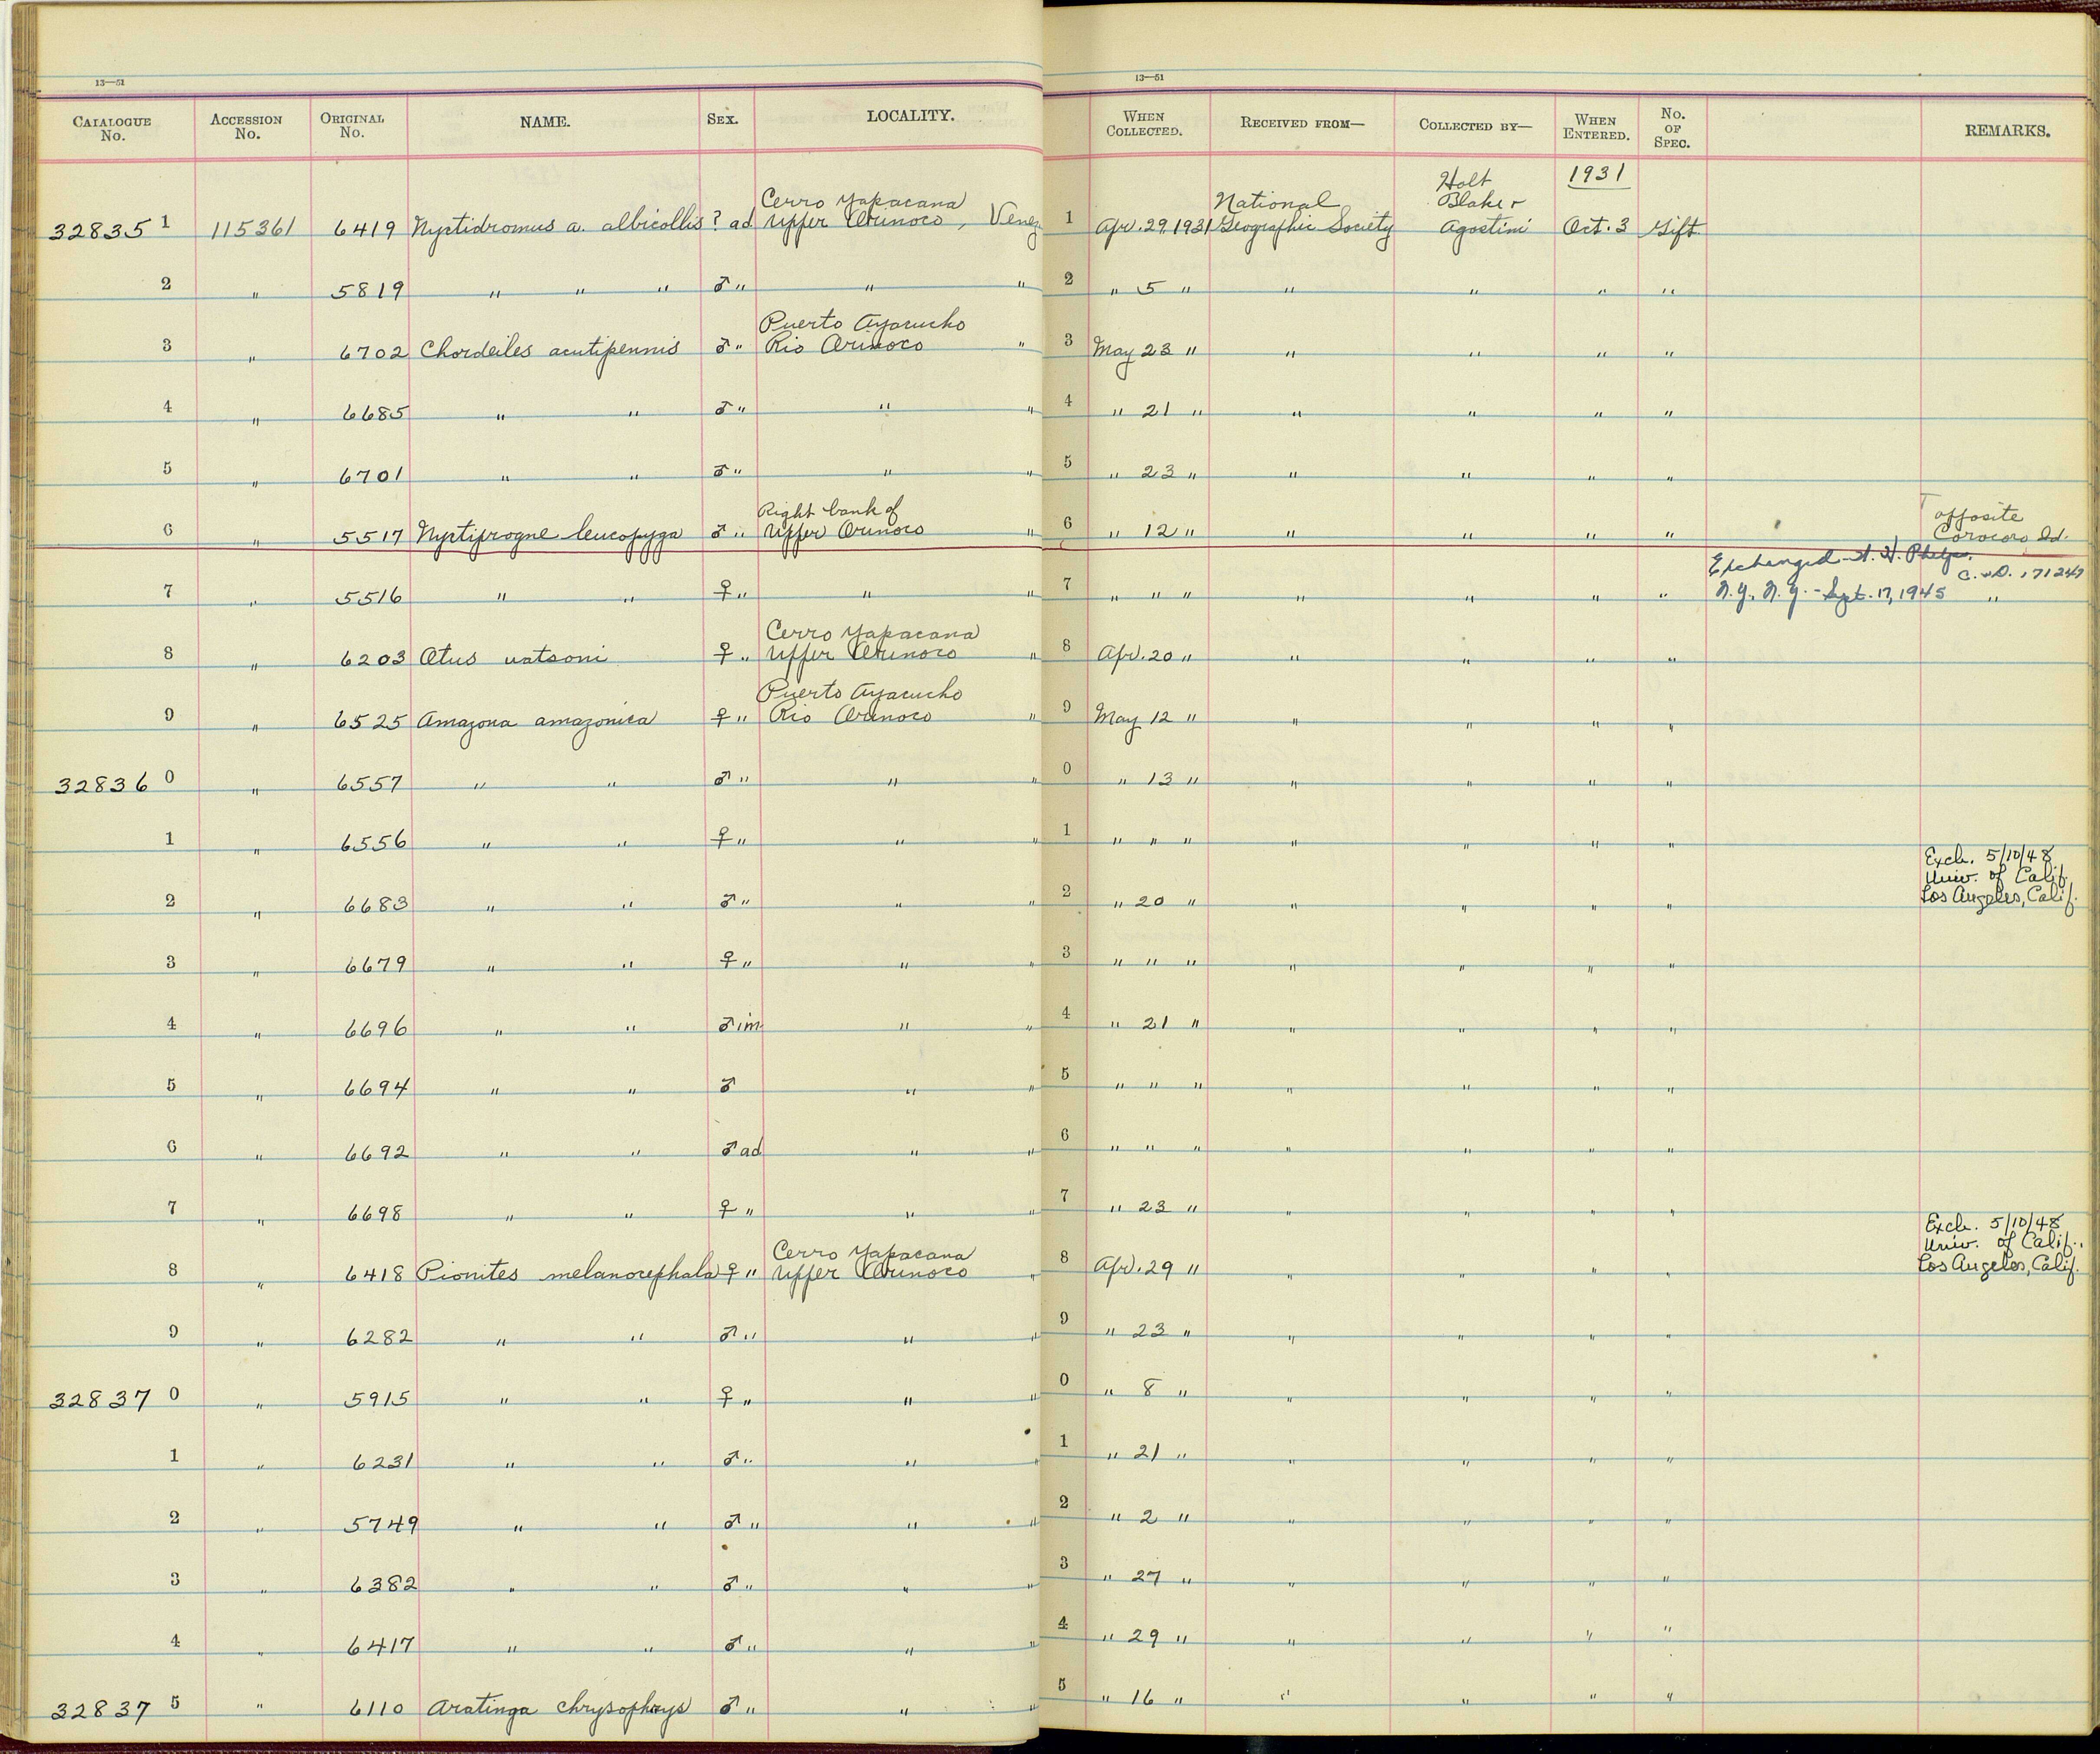 13—51
CATALOGUE No. ACCESSION No. ORIGINAL No. NAME. SEX. LOCALITY.
13—51
WHEN COLLECTED. RECEIVED FROM— COLLECTED BY— WHEN ENTERED. No. OF SPEC. REMARKS.
32835 1 115361 6419 Nyctidromus a. albicollis ? ad Cerro Yapacana Upper Orinoco, Venez. 1 Apr. 29, 1931 National Geographic Society Holt Blaker Agostini 1931 Oct. 3 Gift
2 " 5819 " " " ♂ " " " 2 " 5 " " " " "
3 " 6702 Chordeiles acutipennis ♂ " Puerto Ayacucho Rio Orinoco " 3 May 23 " " " " "
4 " 6685 " " ♂ " " " 4 " 21 " " " " "
5 " 6701 " " ♂ " " " 5 " 23 " " " " "
6 " 5517 Nyctiprogne leucopyga ♂ " Right bank of Upper Orinoco " 6 " 12 " " " " " opposite Corocoro Id.
7 " 5516 " " ♀ " " " 7 " " " " " " " Exchanged - W. H. Phelps, N.Y., N.Y. - Sept. 17, 1945 "
8 " 6203 Otus watsoni ♀ " Cerro Yapacana Upper Orinoco " 8 Apr. 20 " " " " "
9 " 6525 Amazona amazonica ♀ " Puerto Ayacucho Rio Orinoco " 9 May 12 " " " " "
32836 0 " 6557 " " ♂ " " " 0 " 13 " " " " "
1 " 6556 " " ♀ " " " 1 " " " " " " "
2 " 6683 " " ♂ " " " 2 " 20 " " " " " Exch. 5/10/48 Univ. of Calif. Los Angeles, Calif.
3 " 6679 " " ♀ " " " 3 " " " " " " "
4 " 6696 " " ♂ im " " 4 " 21 " " " " "
5 " 6694 " " ♂ " " 5 " " " " " " "
6 " 6692 " " ♂ ad " " 6 " " " " " " "
7 " 6698 " " ♀ " " " 7 " 23 " " " " "
8 " 6418 Pionites melanocephala ♀ " Cerro Yapacana Upper Orinoco " 8 Apr. 29 " " " " " Exch. 5/10/48 Univ. of Calif., Los Angeles, Calif.
9 " 6282 " " ♂ " " " 9 " 23 " " " " "
32837 0 " 5915 " " ♀ " " " 0 " 8 " " " " "
1 " 6231 " " ♂ " " " 1 " 21 " " " " "
2 " 5749 " " ♂ " " " 2 " 2 " " " " "
3 " 6382 " " ♂ " " " 3 " 27 " " " " "
4 " 6417 " " ♂ " " " 4 " 29 " " " " "
32837 5 " 6110 Aratinga chrysophrys ♂ " " " 5 " 16 " " " " "